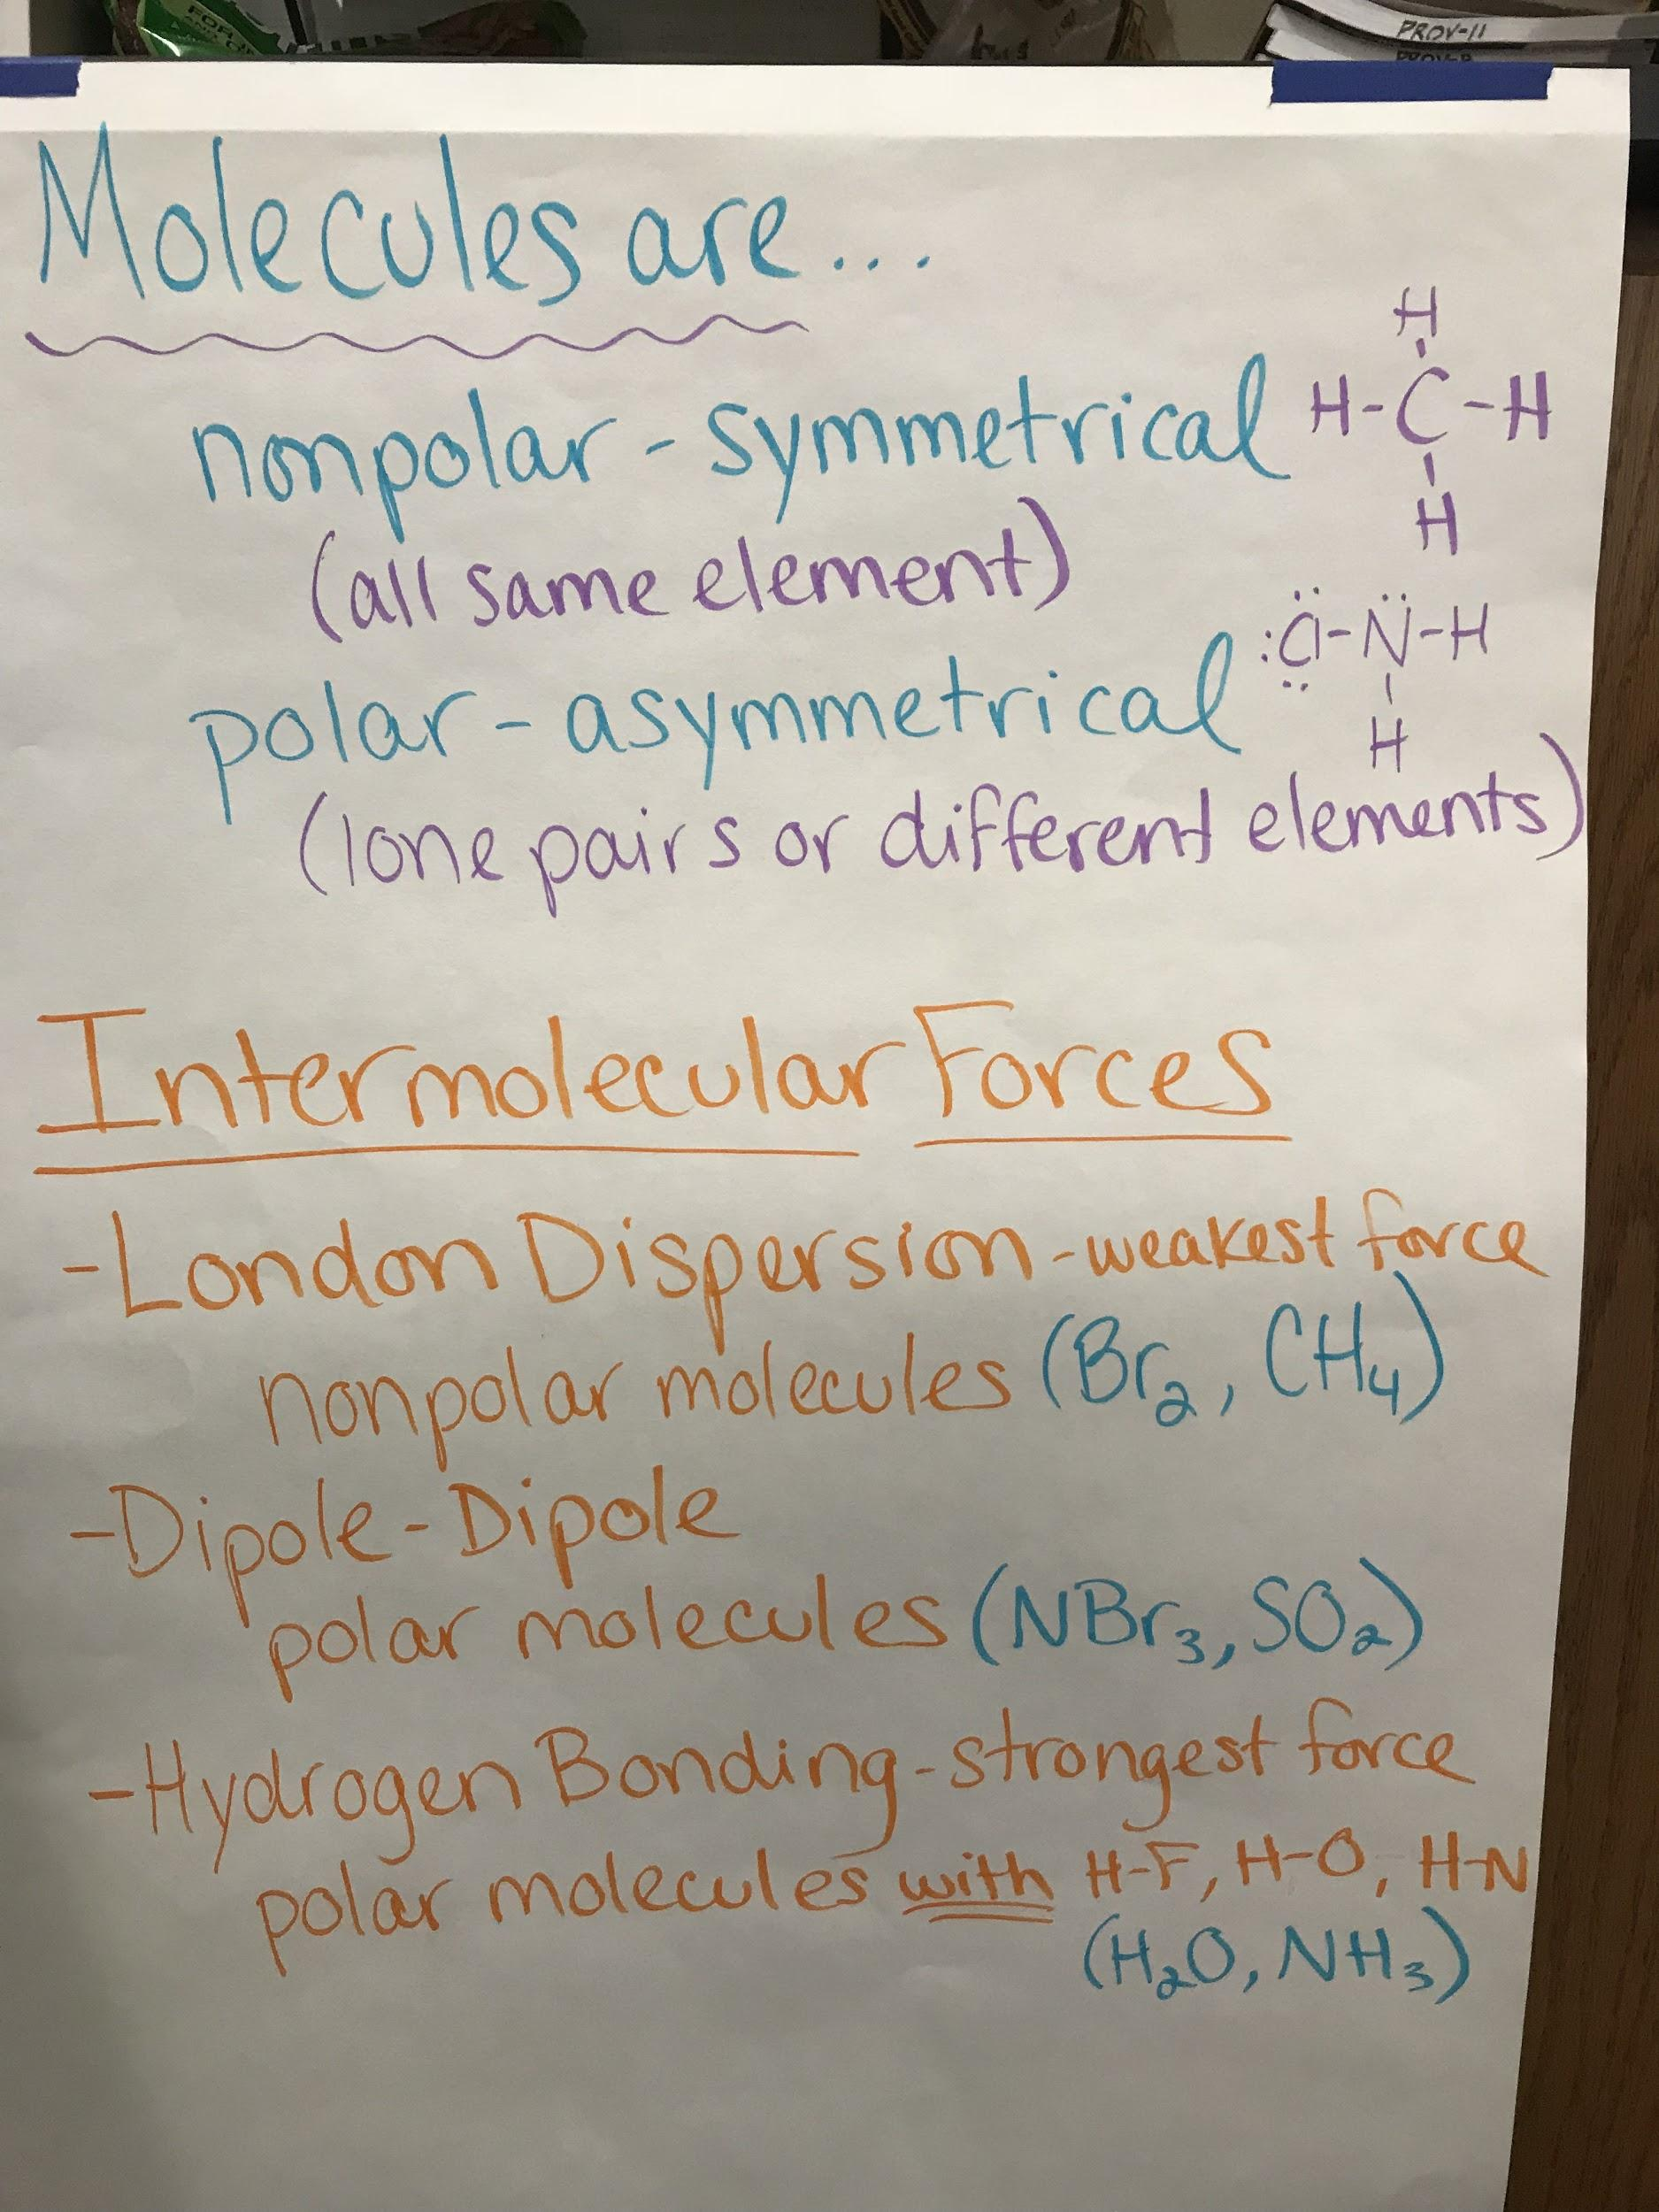 PROV-11
Molecules are...
nonpolar - symmetrical
H
H-C-H
H
(all same element)
:Cl-N-H
H
polar - asymmetrical
(lone pairs or different elements)
Intermolecular Forces
-London Dispersion-weakest force
nonpolar molecules (Br₂, CH₄)
-Dipole-Dipole
polar molecules (NBr₃, SO₂)
-Hydrogen Bonding-strongest force
polar molecules with H-F, H-O, H-N
(H₂O, NH₃)